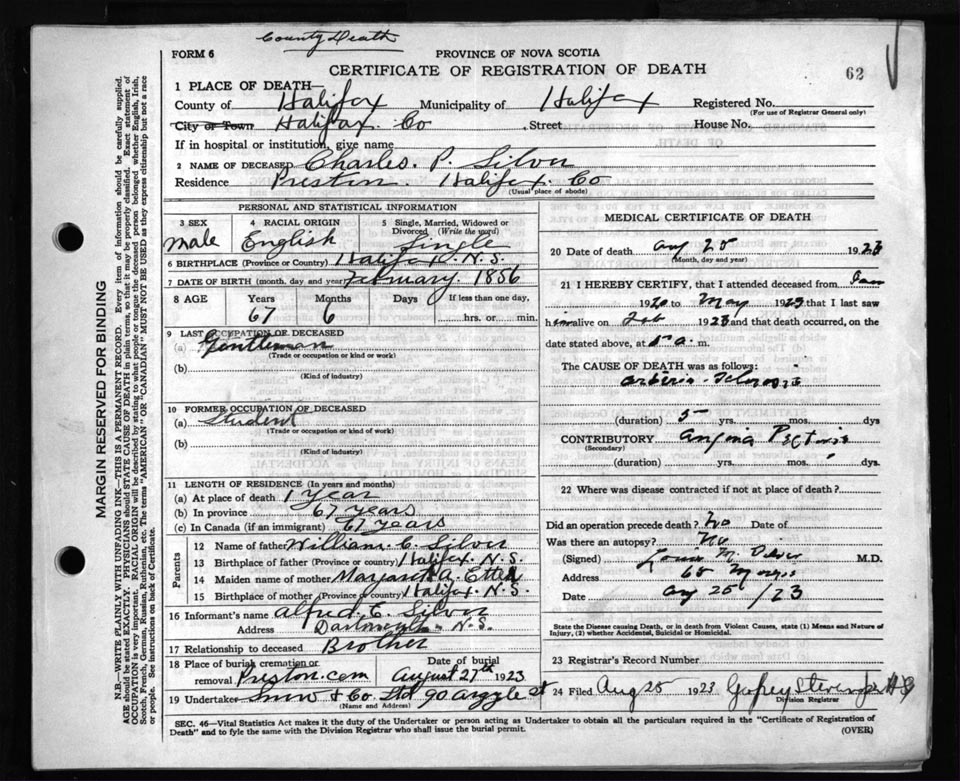 County Death
FORM 6
PROVINCE OF NOVA SCOTIA
CERTIFICATE OF REGISTRATION OF DEATH
62
1 PLACE OF DEATH—
County of Halifax Municipality of Halifax Registered No.
(For use of Registrar General only)
City or Town Halifax Co , Street House No.
If in hospital or institution, give name
2 NAME OF DECEASED Charles. P. Silver
Residence Preston. Halifax. Co
(Usual place of abode)
PERSONAL AND STATISTICAL INFORMATION
3 SEX 4 RACIAL ORIGIN 5 Single, Married, Widowed or Divorced (Write the word)
Male English Single
6 BIRTHPLACE (Province or Country) Halifax. N.S.
7 DATE OF BIRTH (month, day and year) February. 1856
8 AGE Years Months Days If less than one day,
67 6 hrs. or min.
9 LAST OCCUPATION OF DECEASED
(a) Gentleman
(Trade or occupation or kind or work)
(b)
(Kind of industry)
10 FORMER OCCUPATION OF DECEASED
(a) Student
(Trade or occupation or kind of work)
(b)
(Kind of industry)
11 LENGTH OF RESIDENCE (In years and months)
(a) At place of death 1 year
(b) In province 67 years
(c) In Canada (if an immigrant) 67 years
Parents
12 Name of father William. C. Silver
13 Birthplace of father (Province or country) Halifax. N.S.
14 Maiden name of mother Margaret A.
15 Birthplace of mother (Province or country) Halifax. N.S.
16 Informant's name Alfred. E. Silver
Address Dartmouth N.S.
17 Relationship to deceased Brother
18 Place of burial cremation or removal Preston. cem Date of burial August 27th 1923
19 Undertaker Snow & Co. Ltd 90 Argyle st
(Name and Address)
MEDICAL CERTIFICATE OF DEATH
20 Date of death Aug 25 1923
(Month, day and year)
21 I HEREBY CERTIFY, that I attended deceased from
1920 to May 1923 that I last saw
him alive on Feb 1923 and that death occurred, on
date stated above, at 5 a. m.
The CAUSE OF DEATH was as follows:
Arterio-Sclerosis
(duration) 5 yrs. mos. dys
CONTRIBUTORY Angina Pectoris
(Secondary)
(duration) yrs. mos. dys.
22 Where was disease contracted if not at place of death?
Did an operation precede death? No Date of
Was there an autopsy? No
(Signed) Louis M. Silver M.D.
Address 65 Morris
Date Aug 25 /23
State the Disease causing Death, or in death from Violent Causes, state (1) Means and Nature of
Injury, (2) whether Accidental, Suicidal or Homicidal.
23 Registrar's Record Number
24 Filed Aug 25 1923
Division Registrar
SEC. 46—Vital Statistics Act makes it the duty of the Undertaker or person acting as Undertaker to obtain all the particulars required in the "Certificate of Registration of
Death" and to fyle the same with the Division Registrar who shall issue the burial permit.
(OVER)
MARGIN RESERVED FOR BINDING
N.B.—WRITE PLAINLY WITH UNFADING INK—THIS IS A PERMANENT RECORD. Every item of information should be carefully supplied.
AGE should be stated EXACTLY. PHYSICIANS should STATE CAUSE OF DEATH in plain terms, so that it may be properly classified. Exact statement of
OCCUPATION is very important. RACIAL ORIGIN will be described by stating to what people or tongue the deceased person belonged whether English, Irish,
Scotch, French, German, Russian, Ruthenian, etc. The terms "AMERICAN" OR "CANADIAN" MUST NOT BE USED as they express citizenship but not a race
or people. See instructions on back of Certificate.